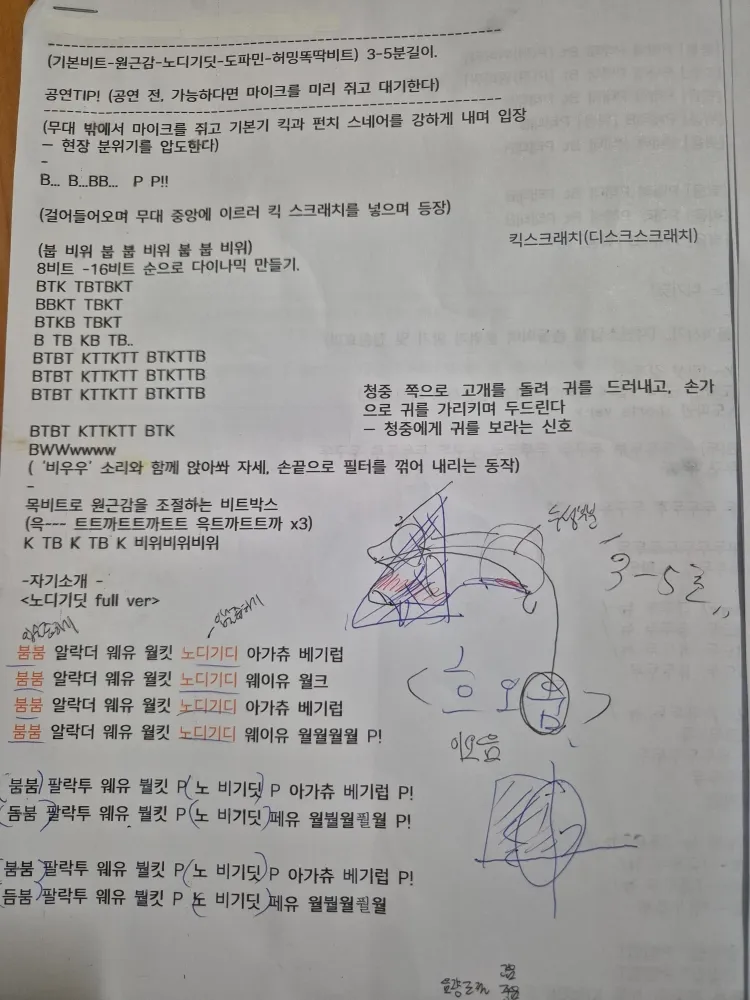 (기본비트-원근감-노디기딧-도파민-허밍똑딱비트) 3-5분길이.
공연TIP! (공연 전, 가능하다면 마이크를 미리 쥐고 대기한다)
(무대 밖에서 마이크를 쥐고 기본기 킥과 펀치 스네어를 강하게 내며 입장
– 현장 분위기를 압도한다)
-
B... B...BB... P P!!
(걸어들어오며 무대 중앙에 이르러 킥 스크래치를 넣으며 등장)
킥스크래치(디스크스크래치)
(붑 비위 붑 붑 비위 붑 붑 비위)
8비트 -16비트 순으로 다이나믹 만들기.
BTK TBTBKT
BBKT TBKT
BTKB TBKT
B TB KB TB..
BTBT KTTKTT BTKTTB
BTBT KTTKTT BTKTTB
BTBT KTTKTT BTKTTB
청중 쪽으로 고개를 돌려 귀를 드러내고, 손가
으로 귀를 가리키며 두드린다
– 청중에게 귀를 보라는 신호
BTBT KTTKTT BTK
BWWwwww
( '비우우' 소리와 함께 앉아쏴 자세, 손끝으로 필터를 꺾어 내리는 동작)
-
목비트로 원근감을 조절하는 비트박스
(윽--- 트트까트트까트트 윽트까트트까 x3)
K TB K TB K 비위비위비위
3-5
-자기소개 -
<노디기딧 full ver>
붐붐 알락더 웨유 월킷 노디기디 아가츄 베기럽
붐붐 알락더 웨유 월킷 노디기디 웨이유 월크
붐붐 알락더 웨유 월킷 노디기디 아가츄 베기럽
붐붐 알락더 웨유 월킷 노디기디 웨이유 월월월월 P!
흐 오
이오음
붐붐 팔락투 웨유 뷜킷 P 노 비기딧 P 아가츄 베기럽 P!
돔붐 팔락투 웨유 뷜킷 P 노 비기딧 페유 월뷜월퓔월 P!
붐붐 팔락투 웨유 뷜킷 P 노 비기딧 P 아가츄 베기럽 P!
듬붐 팔락투 웨유 뷜킷 P 노 비기딧 페유 월뷜월퓔월